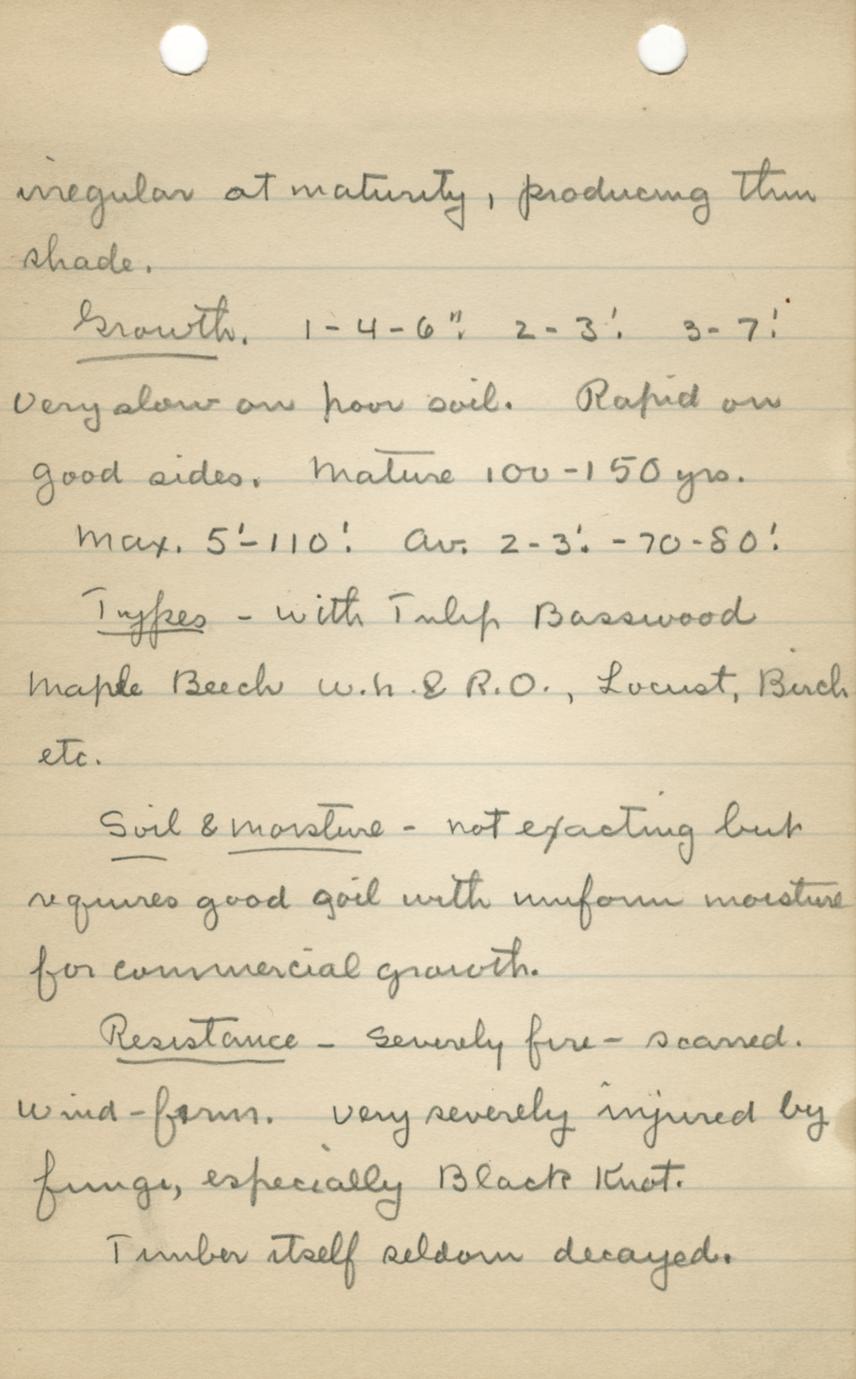 irregular at maturity, producing thin
shade.
Growth. 1-4-6". 2-3'. 3-7'.
Very slow on poor soil. Rapid on
good sides. Mature 100-150 yrs.
Max. 5'-110'. Av. 2-3'.-70-80'.
Types - with Tulip Basswood
Maple Beech W.h. & R.O., Locust, Birch
etc.
Soil & moisture - not exacting but
requires good soil with uniform moisture
for commercial growth.
Resistance - Severely fire-scarred.
Wind-firm. Very severely injured by
fungi, especially Black Knot.
Timber itself seldom decayed.